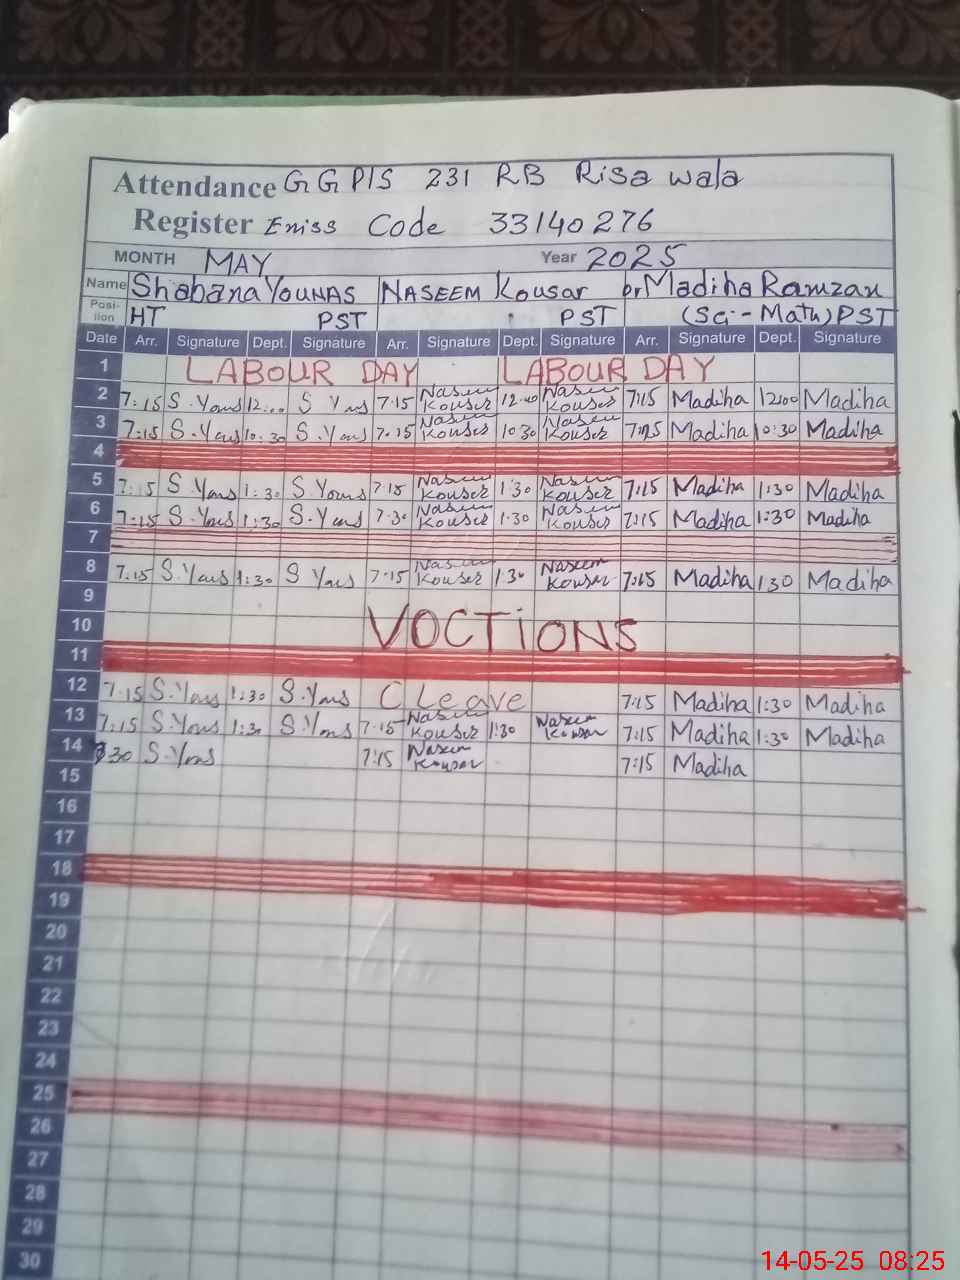 Attendance GGP/S 231 RB Risa wala
Register Emiss Code 33140276
MONTH MAY Year 2025
Name Shabana YOUNAS NASEEM Kousar Madiha Ramzan
Posi-tion HT PST PST (Sci-Math) PST
Date Arr. Signature Dept. Signature Arr. Signature Dept. Signature Arr. Signature Dept. Signature
1 LABOUR DAY LABOUR DAY
2 7:15 S.Yons 12:00 S Yons 7:15 Naseem Kouser 12:00 Naseem Kouser 7:15 Madiha 12:00 Madiha
3 7:15 S.Yons 10:30 S.Yons 7:15 Naseem Kouser 10:30 Naseem Kouser 7:15 Madiha 10:30 Madiha
4
5 7:15 S.Yons 1:30 S Yons 7:15 Naseem Kouser 1:30 Naseem Kouser 7:15 Madiha 1:30 Madiha
6 7:15 S.Yons 1:30 S.Yons 7:30 Naseem Kouser 1:30 Naseem Kouser 7:15 Madiha 1:30 Madiha
7
8 7:15 S.Yons 1:30 S Yons 7:15 Naseem Kouser 1:30 Naseem Kouser 7:15 Madiha 1:30 Madiha
9
10 VOCTIONS
11
12 7:15 S.Yons 1:30 S.Yons C Leave 7:15 Madiha 1:30 Madiha
13 7:15 S.Yons 1:30 S.Yons 7:15 Naseem Kouser 1:30 Naseem Kousar 7:15 Madiha 1:30 Madiha
14 S.Yons 7:15 Naseem Kousar 7:15 Madiha
15
16
17
18
19
20
21
22
23
24
25
26
27
28
29
30
14-05-25 08:25